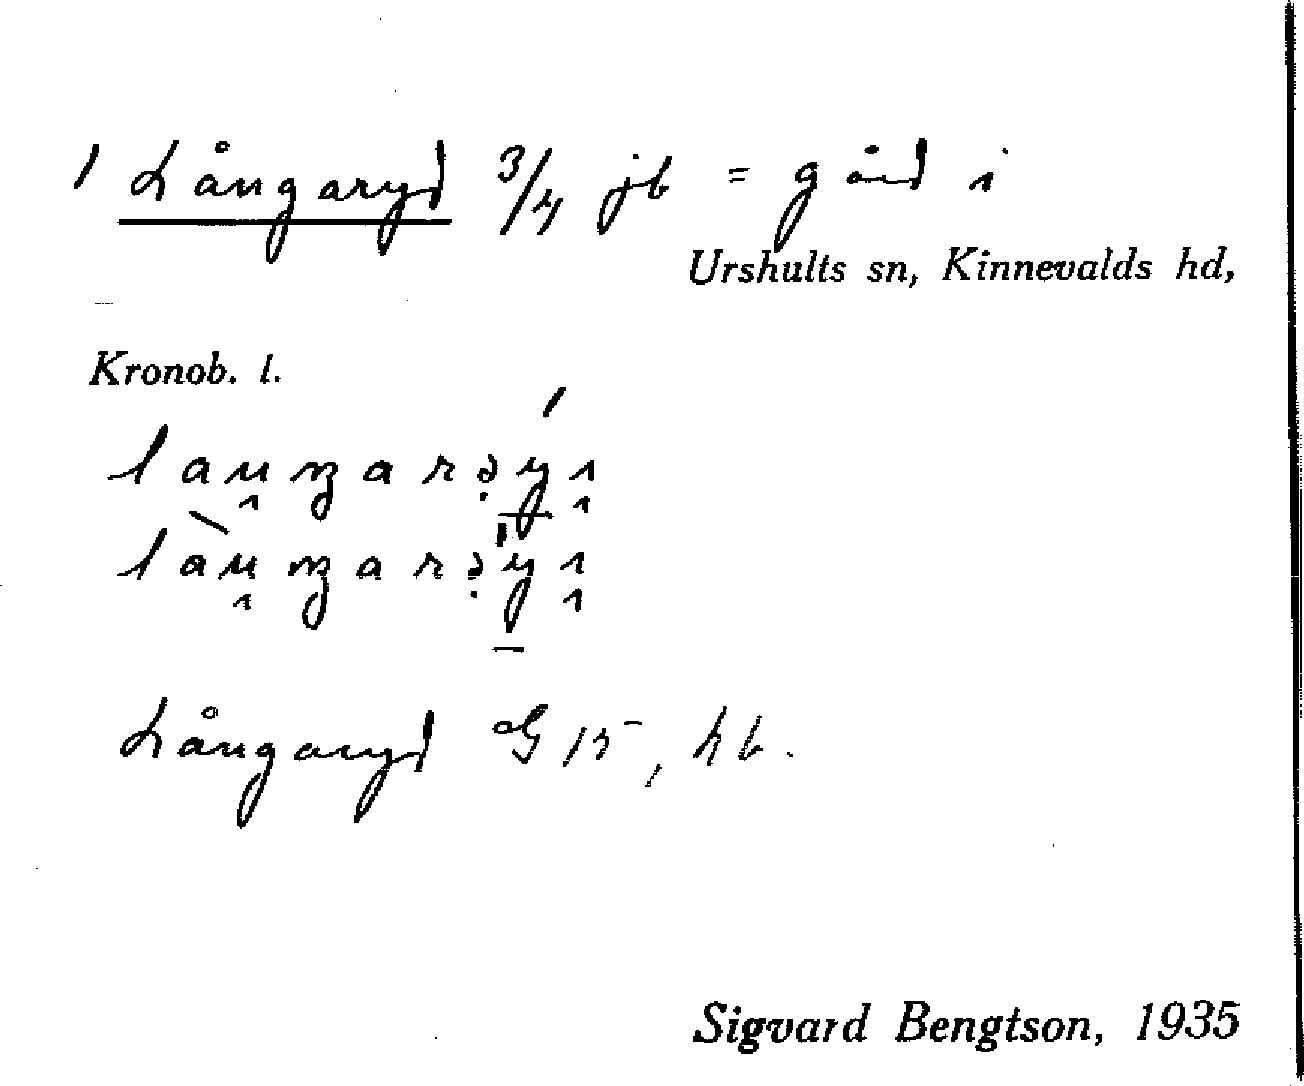 1 Långaryd 3/4 jb = gård i
Urshults sn, Kinnevalds hd,
Kronob. l.
Långaryd G 15, hb.
Sigvard Bengtson, 1935